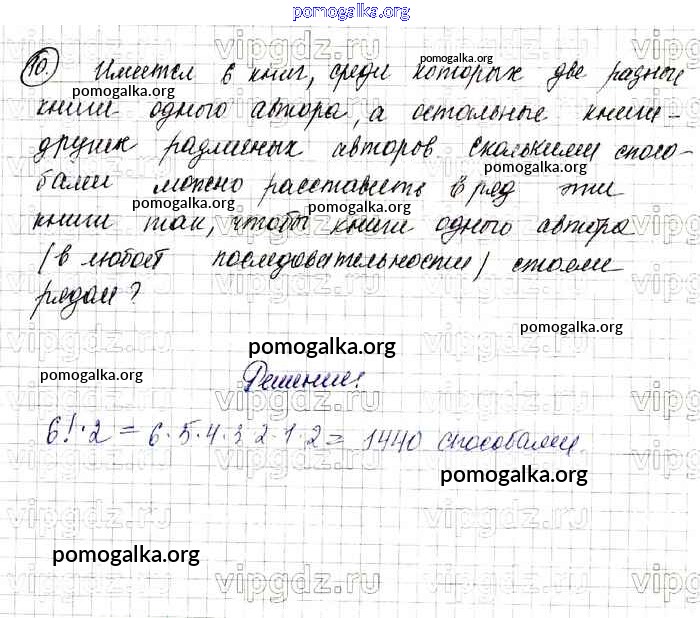 pomogalka.org
10. Имеется 6 книг, среди которых две разные
книги одного автора, а остальные книги -
других различных авторов Сколькими спосо-
бами можно расставить в ряд эти
книги так, чтобы книги одного автора
/в любой последовательности/ стояли
рядом?
Решение:
6!·2 = 6·5·4·3·2·1·2 = 1440 способами.
pomogalka.org
pomogalka.org
pomogalka.org
pomogalka.org
pomogalka.org
pomogalka.org
pomogalka.org
pomogalka.org
pomogalka.org
pomogalka.org
vipgdz.ru
vipgdz.ru
vipgdz.ru
vipgdz.ru